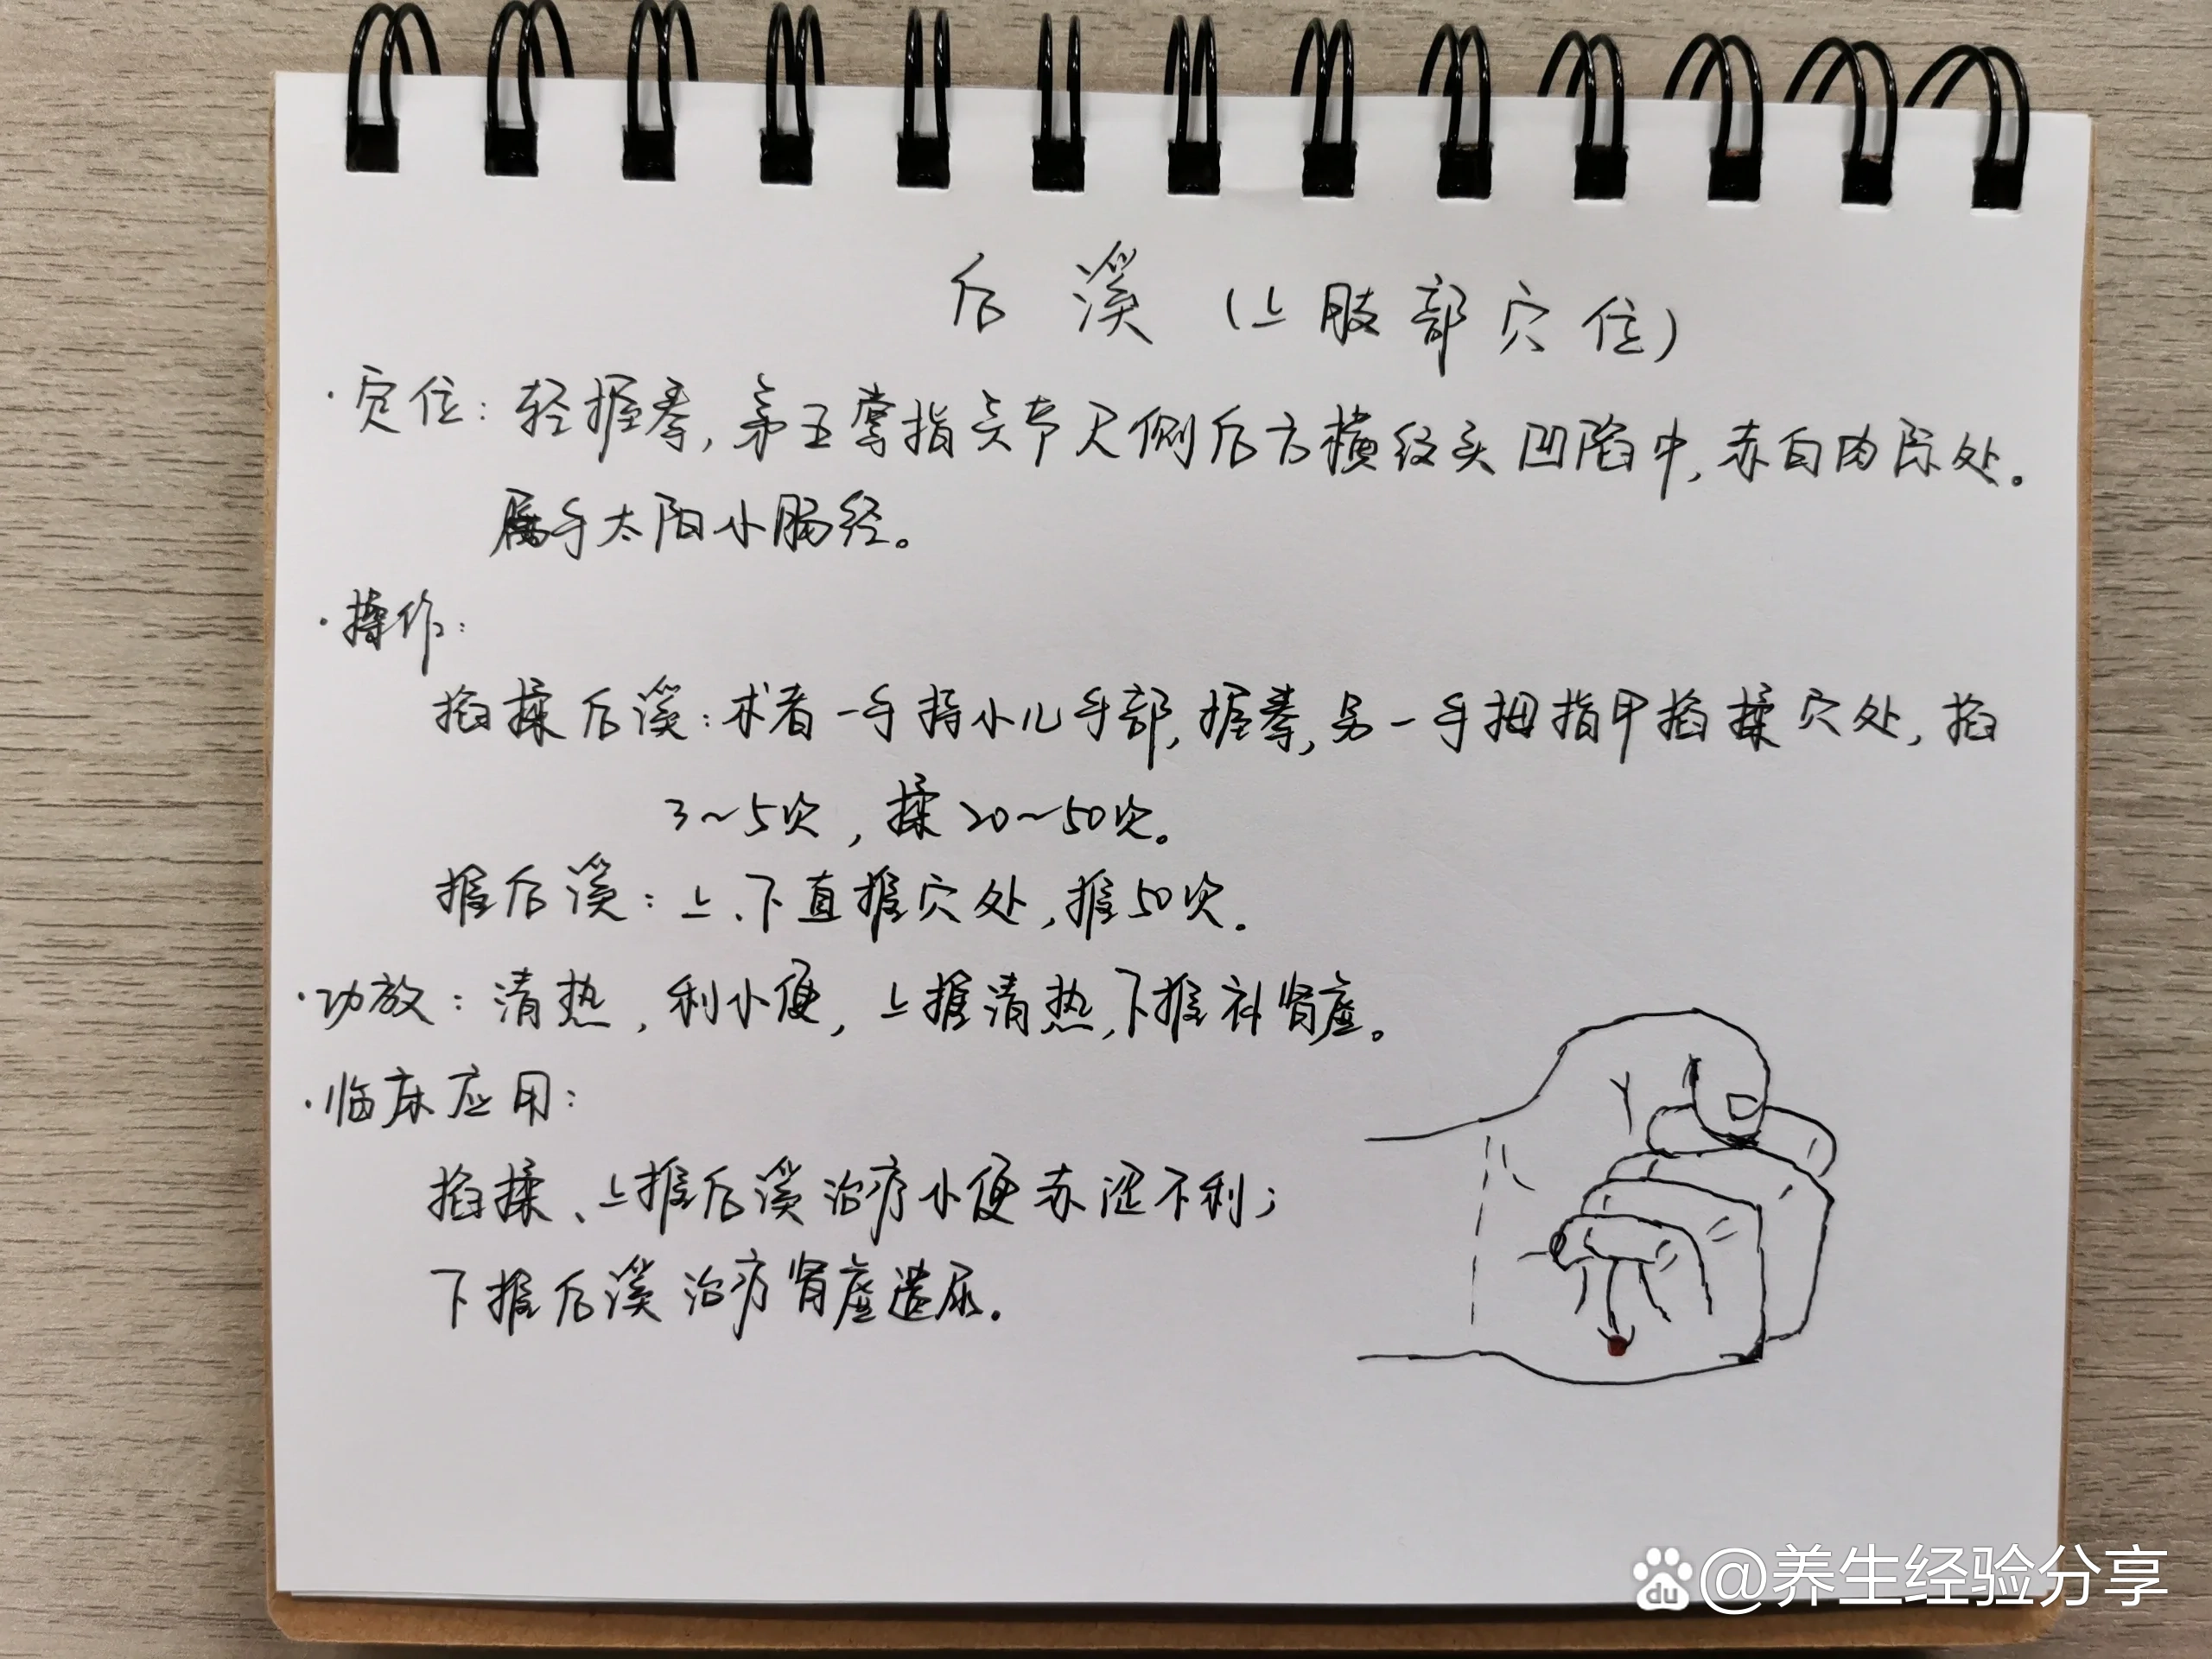 后溪(上肢部穴位)
·定位:轻握拳,第五掌指关节尺侧后方横纹头凹陷中,赤白肉际处。
属手太阳小肠经。
·操作:
掐揉后溪:术者一手持小儿手部,握拳,另一手拇指甲掐揉穴处,掐
3~5次,揉20~50次。
推后溪:上、下直推穴处,推50次.
·功效:清热,利小便,上推清热,下推补肾虚。
·临床应用:
掐揉、上推后溪治疗小便赤涩不利;
下推后溪治疗肾虚遗尿.
du @养生经验分享